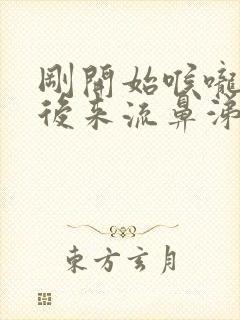 剛開始喉嚨
後来流鼻涕
東方玄月